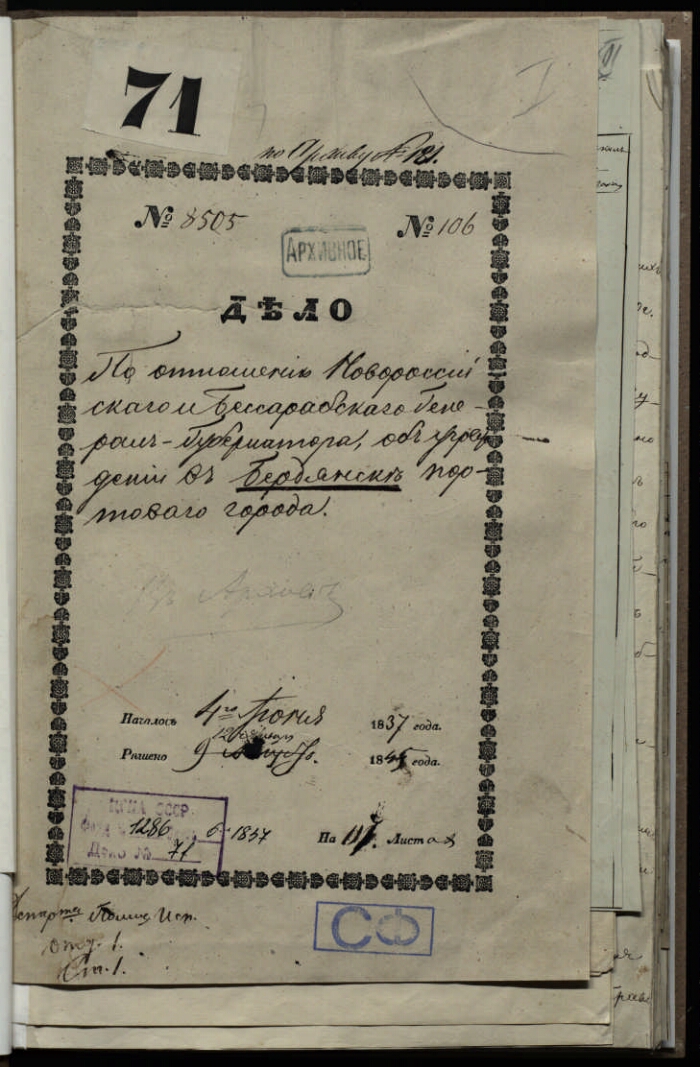 71
I
по Архиву № 121.
№ 8505
№ 106
АРХИВНОЕ
ДѢЛО
По отношенію Новороссій
скаго и Бессарабскаго Гене-
ралъ-Губернатора, объ учреж-
деніи въ Бердянскѣ пор-
товаго города.
Въ Архивъ
Началось 4го Іюня 1837 года.
Рѣшено 9 1845 года.
ЦГИА СССР
Фонд 1286 6-1837
Дело № 71
На 117 Листах
СФ
Департа Полиц Исп.
отд. 1.
Ст. 1.